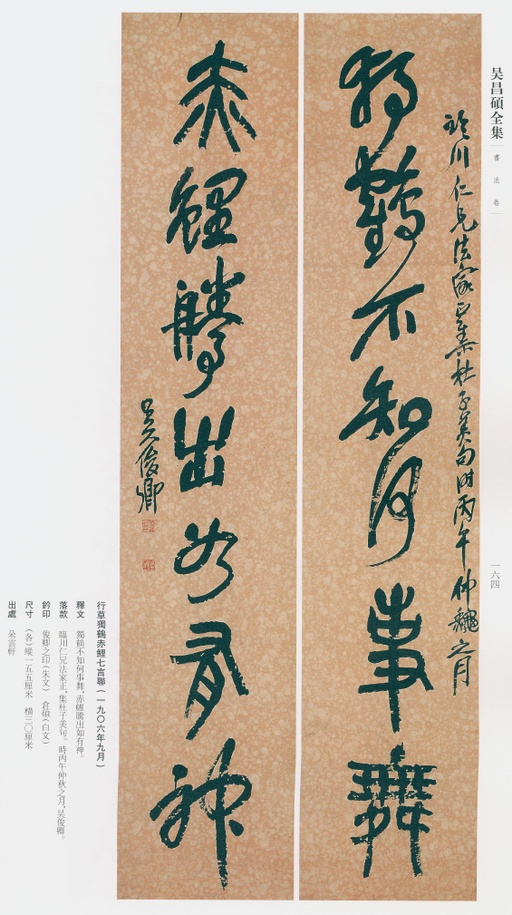 吴昌碩全集
書法卷
一六四
獨鶴不知何事舞
臨川仁兄法家正集杜子美句时丙午仲龝之月
赤鯉騰出如有神
吴俊卿
行草獨鶴赤鯉七言聯（一九〇六年九月）
釋文　獨鶴不知何事舞，赤鯉騰出如有神。
落款　臨川仁兄法家正，集杜子美句。時丙午仲秋之月，吴俊卿。
鈐印　俊卿之印（朱文）　倉碩（白文）
尺寸　（各）縱一五五厘米　橫三〇厘米
出處　朵雲軒